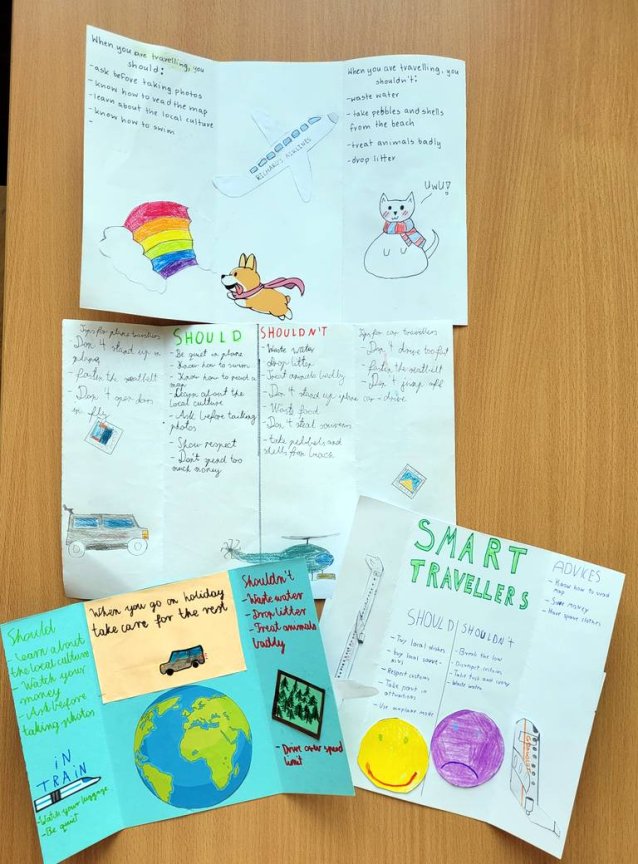 When you are travelling, you
should:
- ask before taking photos
- know how to read the map
- learn about the local culture
- know how to swim
-
RICHARD'S AIRLINES
When you are travelling, you
shouldn't:
- waste water
- take pebbles and shells
from the beach
- treat animals badly
- drop litter
UWU!
Tips for plane travellers
- Don't stand up in
plane
- Fasten the seatbelt
- Don't open door
in fly
SHOULD
- Be quiet in plane
- Know how to swim
- Know how to read a
map
- Learn about the
local culture
- Ask before taking
photos
- Show respect
- Don't spend too
much money
SHOULDN'T
- Waste water
- drop litter
- Treat animals badly
- Don't stand up
- Waste food
- Don't steal souvenirs
- take
shells from beach
Tips for car travellers
- Don't drive too fast
- Fasten the seatbelt
- Don't
- drive
SMART
TRAVELLERS
SHOULD
- Buy local
- buy local
- Respect customs
- Take part in
- Use airplane mode
SHOULDN'T
- Break the law
- Disrespect customs
- Waste water
ADVICES
- Know how to read
map
- Save money
- Have spare clothes
Should
- Learn about
the local culture
- Watch your
money
- Ask before
taking photos
IN
TRAIN
- Watch your luggage
- Be quiet
When you go on holiday
take care for the rest
Shouldn't
- Waste water
- Drop litter
- Treat animals
badly
- Drive over speed
limit